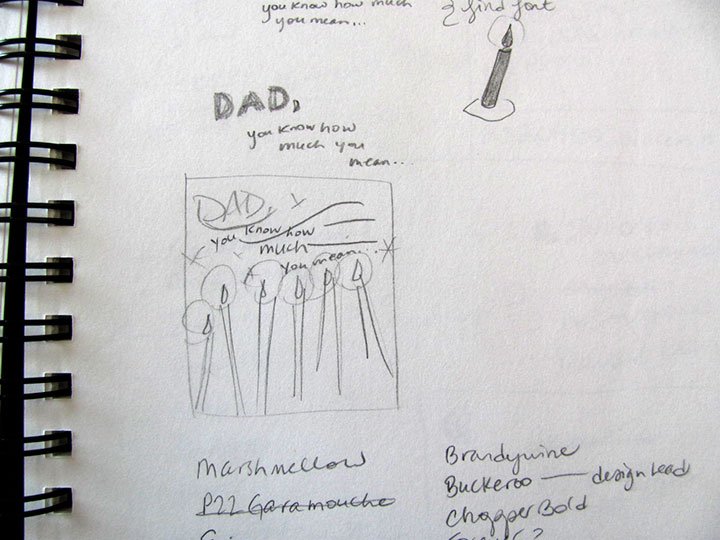 you know how much
you mean...
& find font
DAD,
you know how
much you
mean...
DAD,
you know how
much
you mean...
Marshmellow
P22 Garamouche
Brandywine
Buckeroo — design lead
Chopper Bold